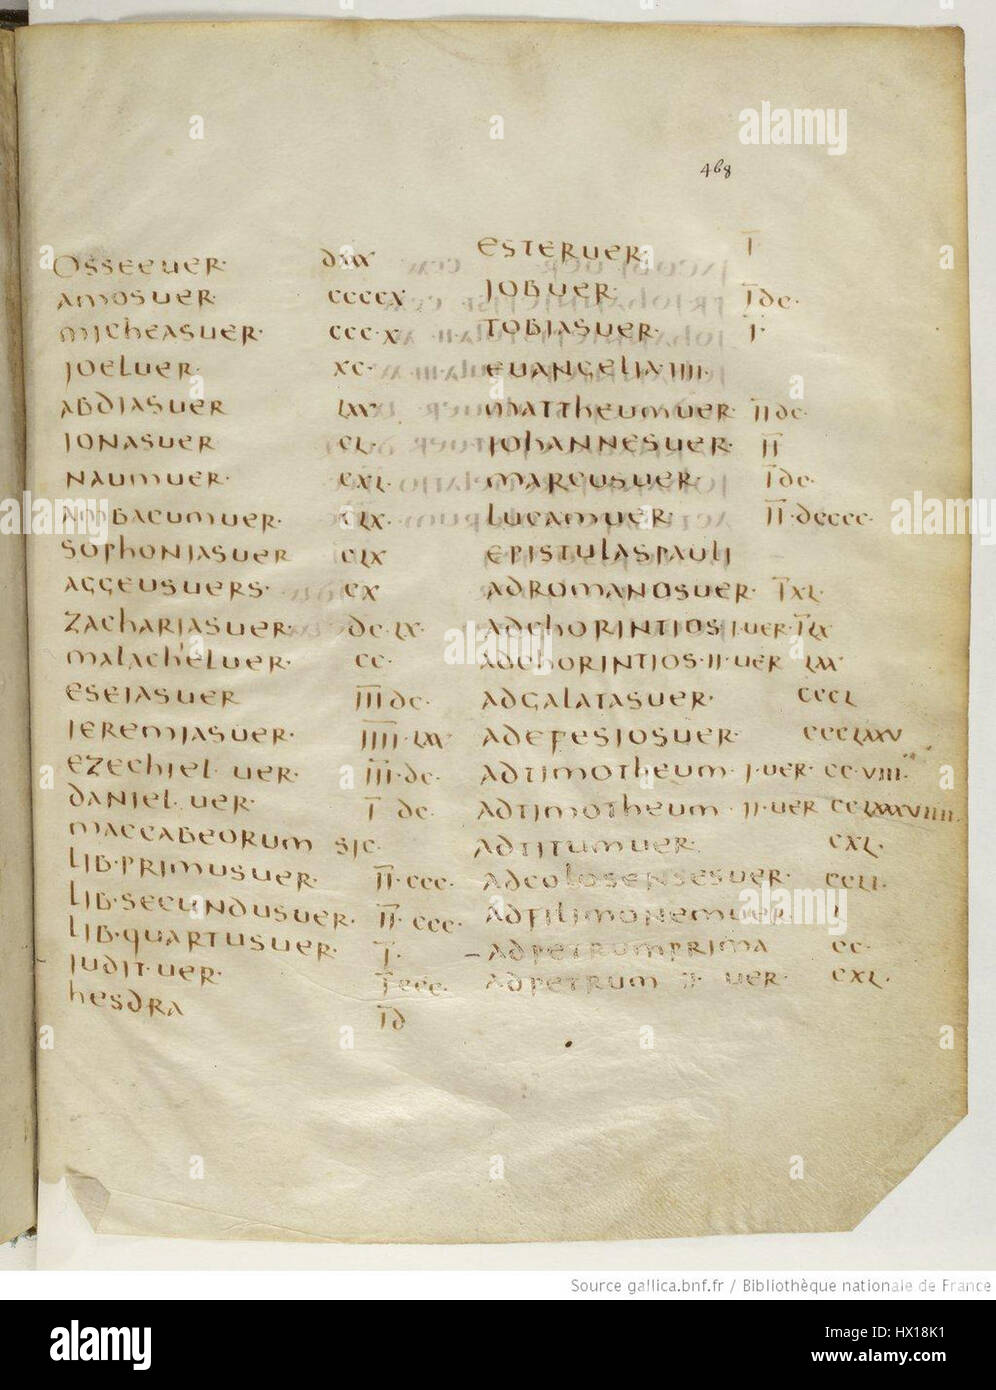 468
OSSEEUER· dxxx
AMOSUER· ccccx
MICHEASUER· ccc·x
JOELUER· xc·
ABDIASUER Lxx·
JONASUER cL·
NAUMUER· cxL·
AMBACUMUER· cLx·
SOPHONIASUER cLx
AGGEUSUERS· cx
ZACHARIASUER· dc·Lx·
MALACHEIUER· cc·
ESEIASUER III dc·
IEREMIASUER· IIII·Lxx
EZECHIEL UER· III·dc·
DANIEL·UER· I dc·
MACCABEORUM SIC·
LIB·PRIMUSUER· II·ccc·
LIB·SECUNDUSUER· II·ccc·
LIB·QUARTUSUER· I·
JUDIT·UER· Iccc·
HESDRA Id
ESTERUER· I
JOBUER· Idc·
TOBIASUER· I·
EUANGELIA IIII·
MATTHEUMUER· IIdc·
JOHANNESUER· II
MARCUSUER Idc·
LUCAMUER· II·dcccc·
EPISTULASPAULI
ADROMANOSUER· IxL·
ADCHORINTIOS·I·UER·ILx
ADCHORINTIOS·II·UER Lxx·
ADGALATASUER· cccL
ADEFESIOSUER· cccLxxv
ADTIMOTHEUM·I·UER· cc·VIII·
ADTIMOTHEUM·II·UER ccLxxxVIIII·
ADTITUMUER· cxL·
ADCOLOSENSESUER· ccLI·
ADFILIMONEMUER· L
– ADPETRUMPRIMA cc·
ADPETRUM II· UER· cxL·
alamy
Source gallica.bnf.fr / Bibliothèque nationale de France
alamy
Image ID: HX18K1
www.alamy.com